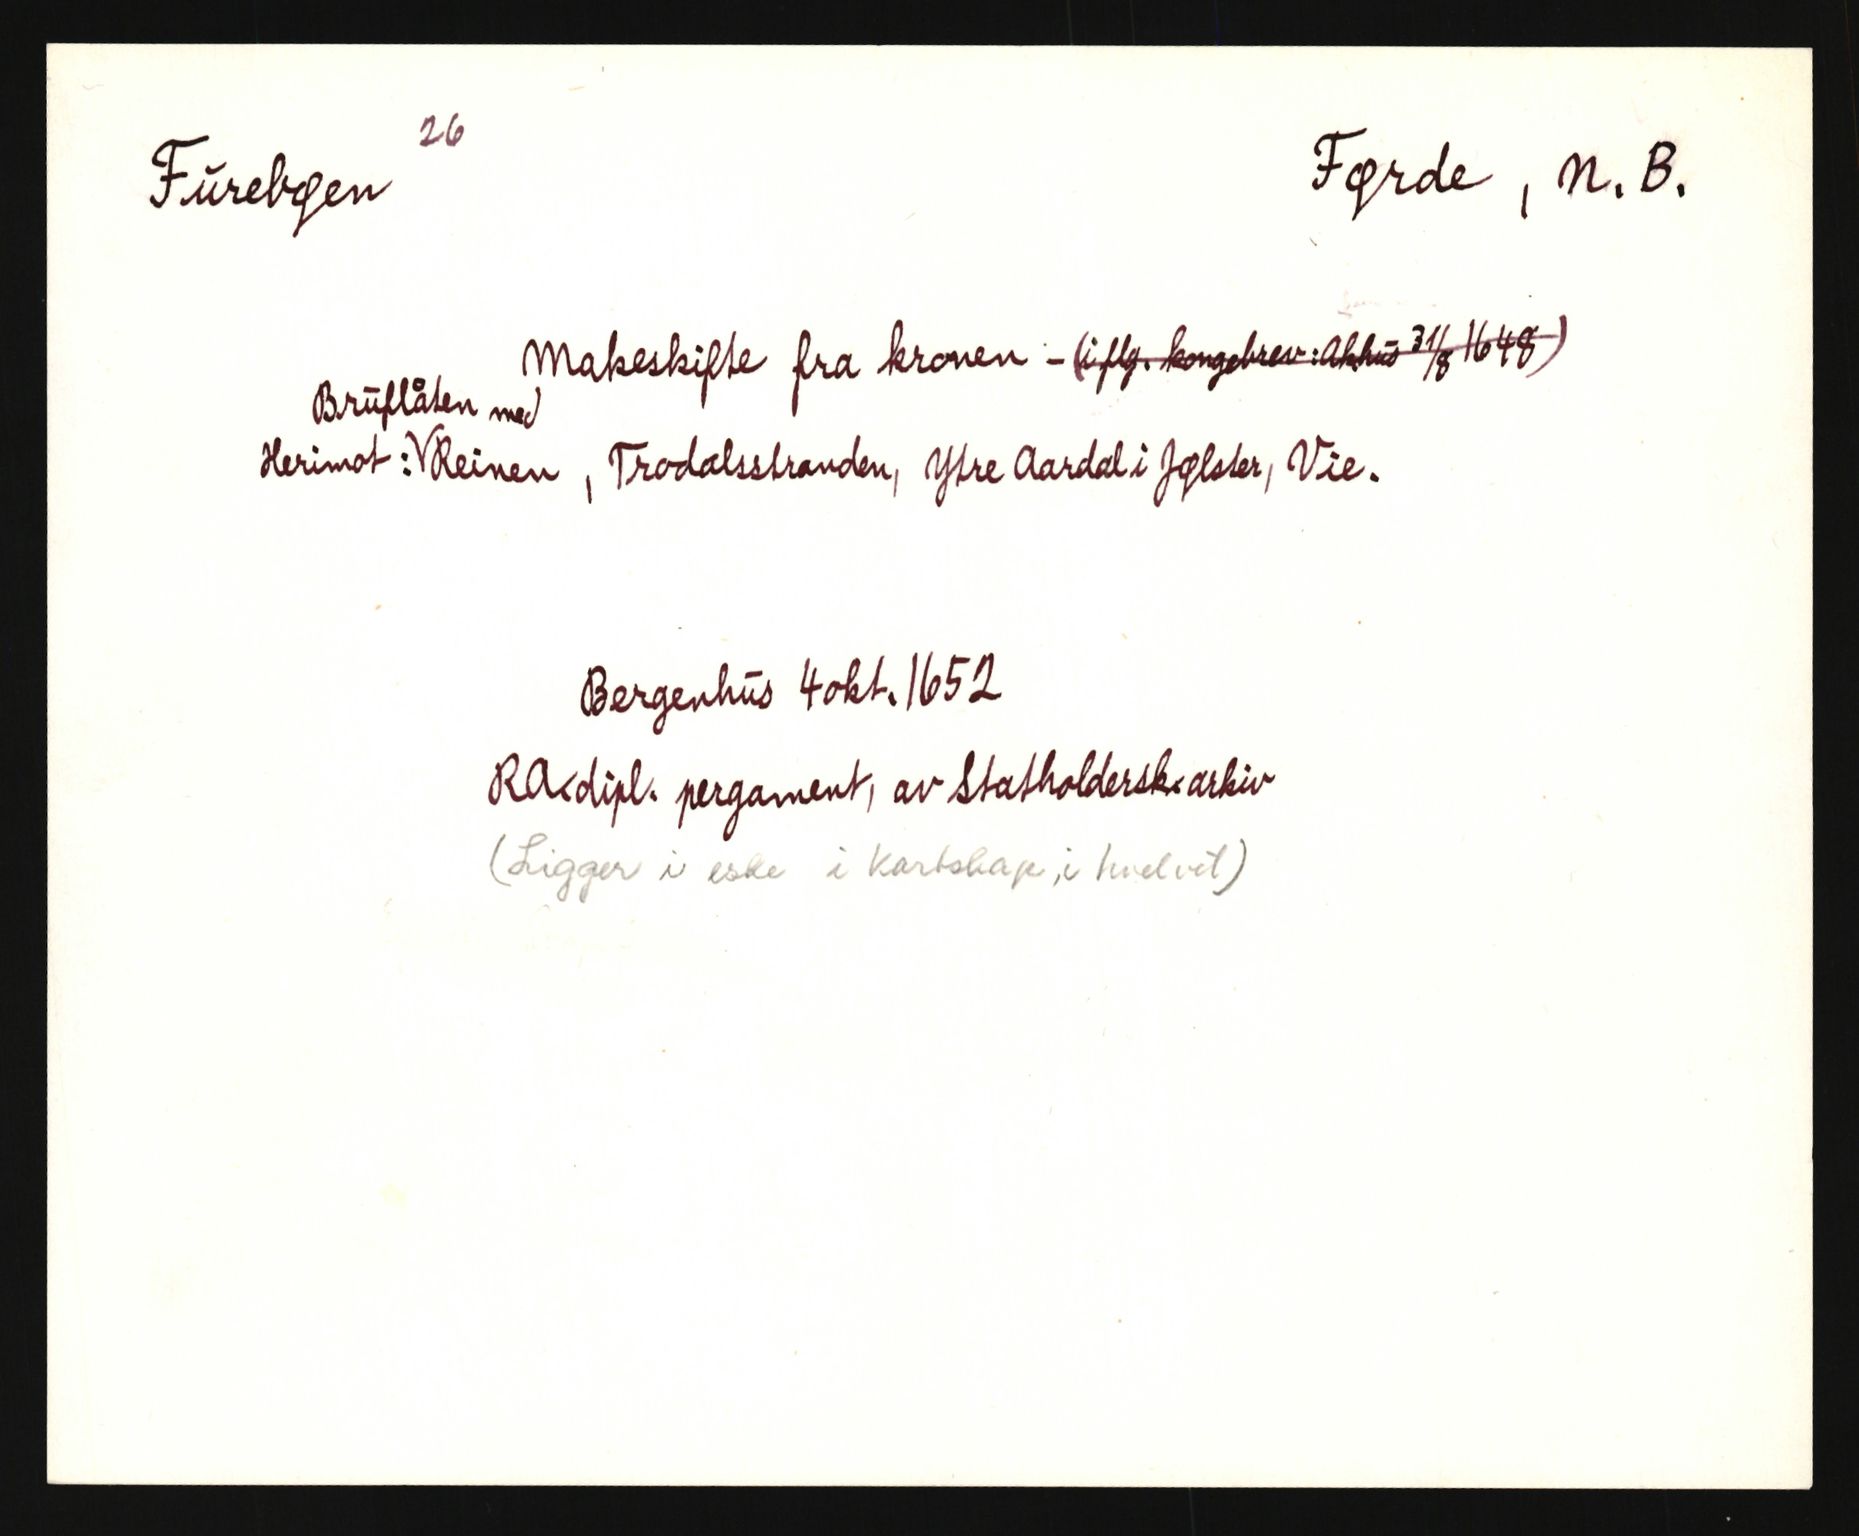 Furebøen 26 Førde, N. B.
Makeskifte fra kronen - (iflg. kongebrev: Akhus 31/8 1648)
Bruflåten med
Herimot: Reinen, Trodalsstranden, Ytre Aardal i Jølster, Vie.
Bergenhus 4 okt. 1652
RA. dipl. pergament, av Statholdersk. arkiv
(Ligger i eske i kartskap, i hvelvet)